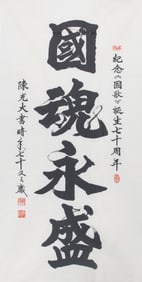 紀念《国歌》誕生七十周年
國魂永盛
陳光大書時年七十又二歲